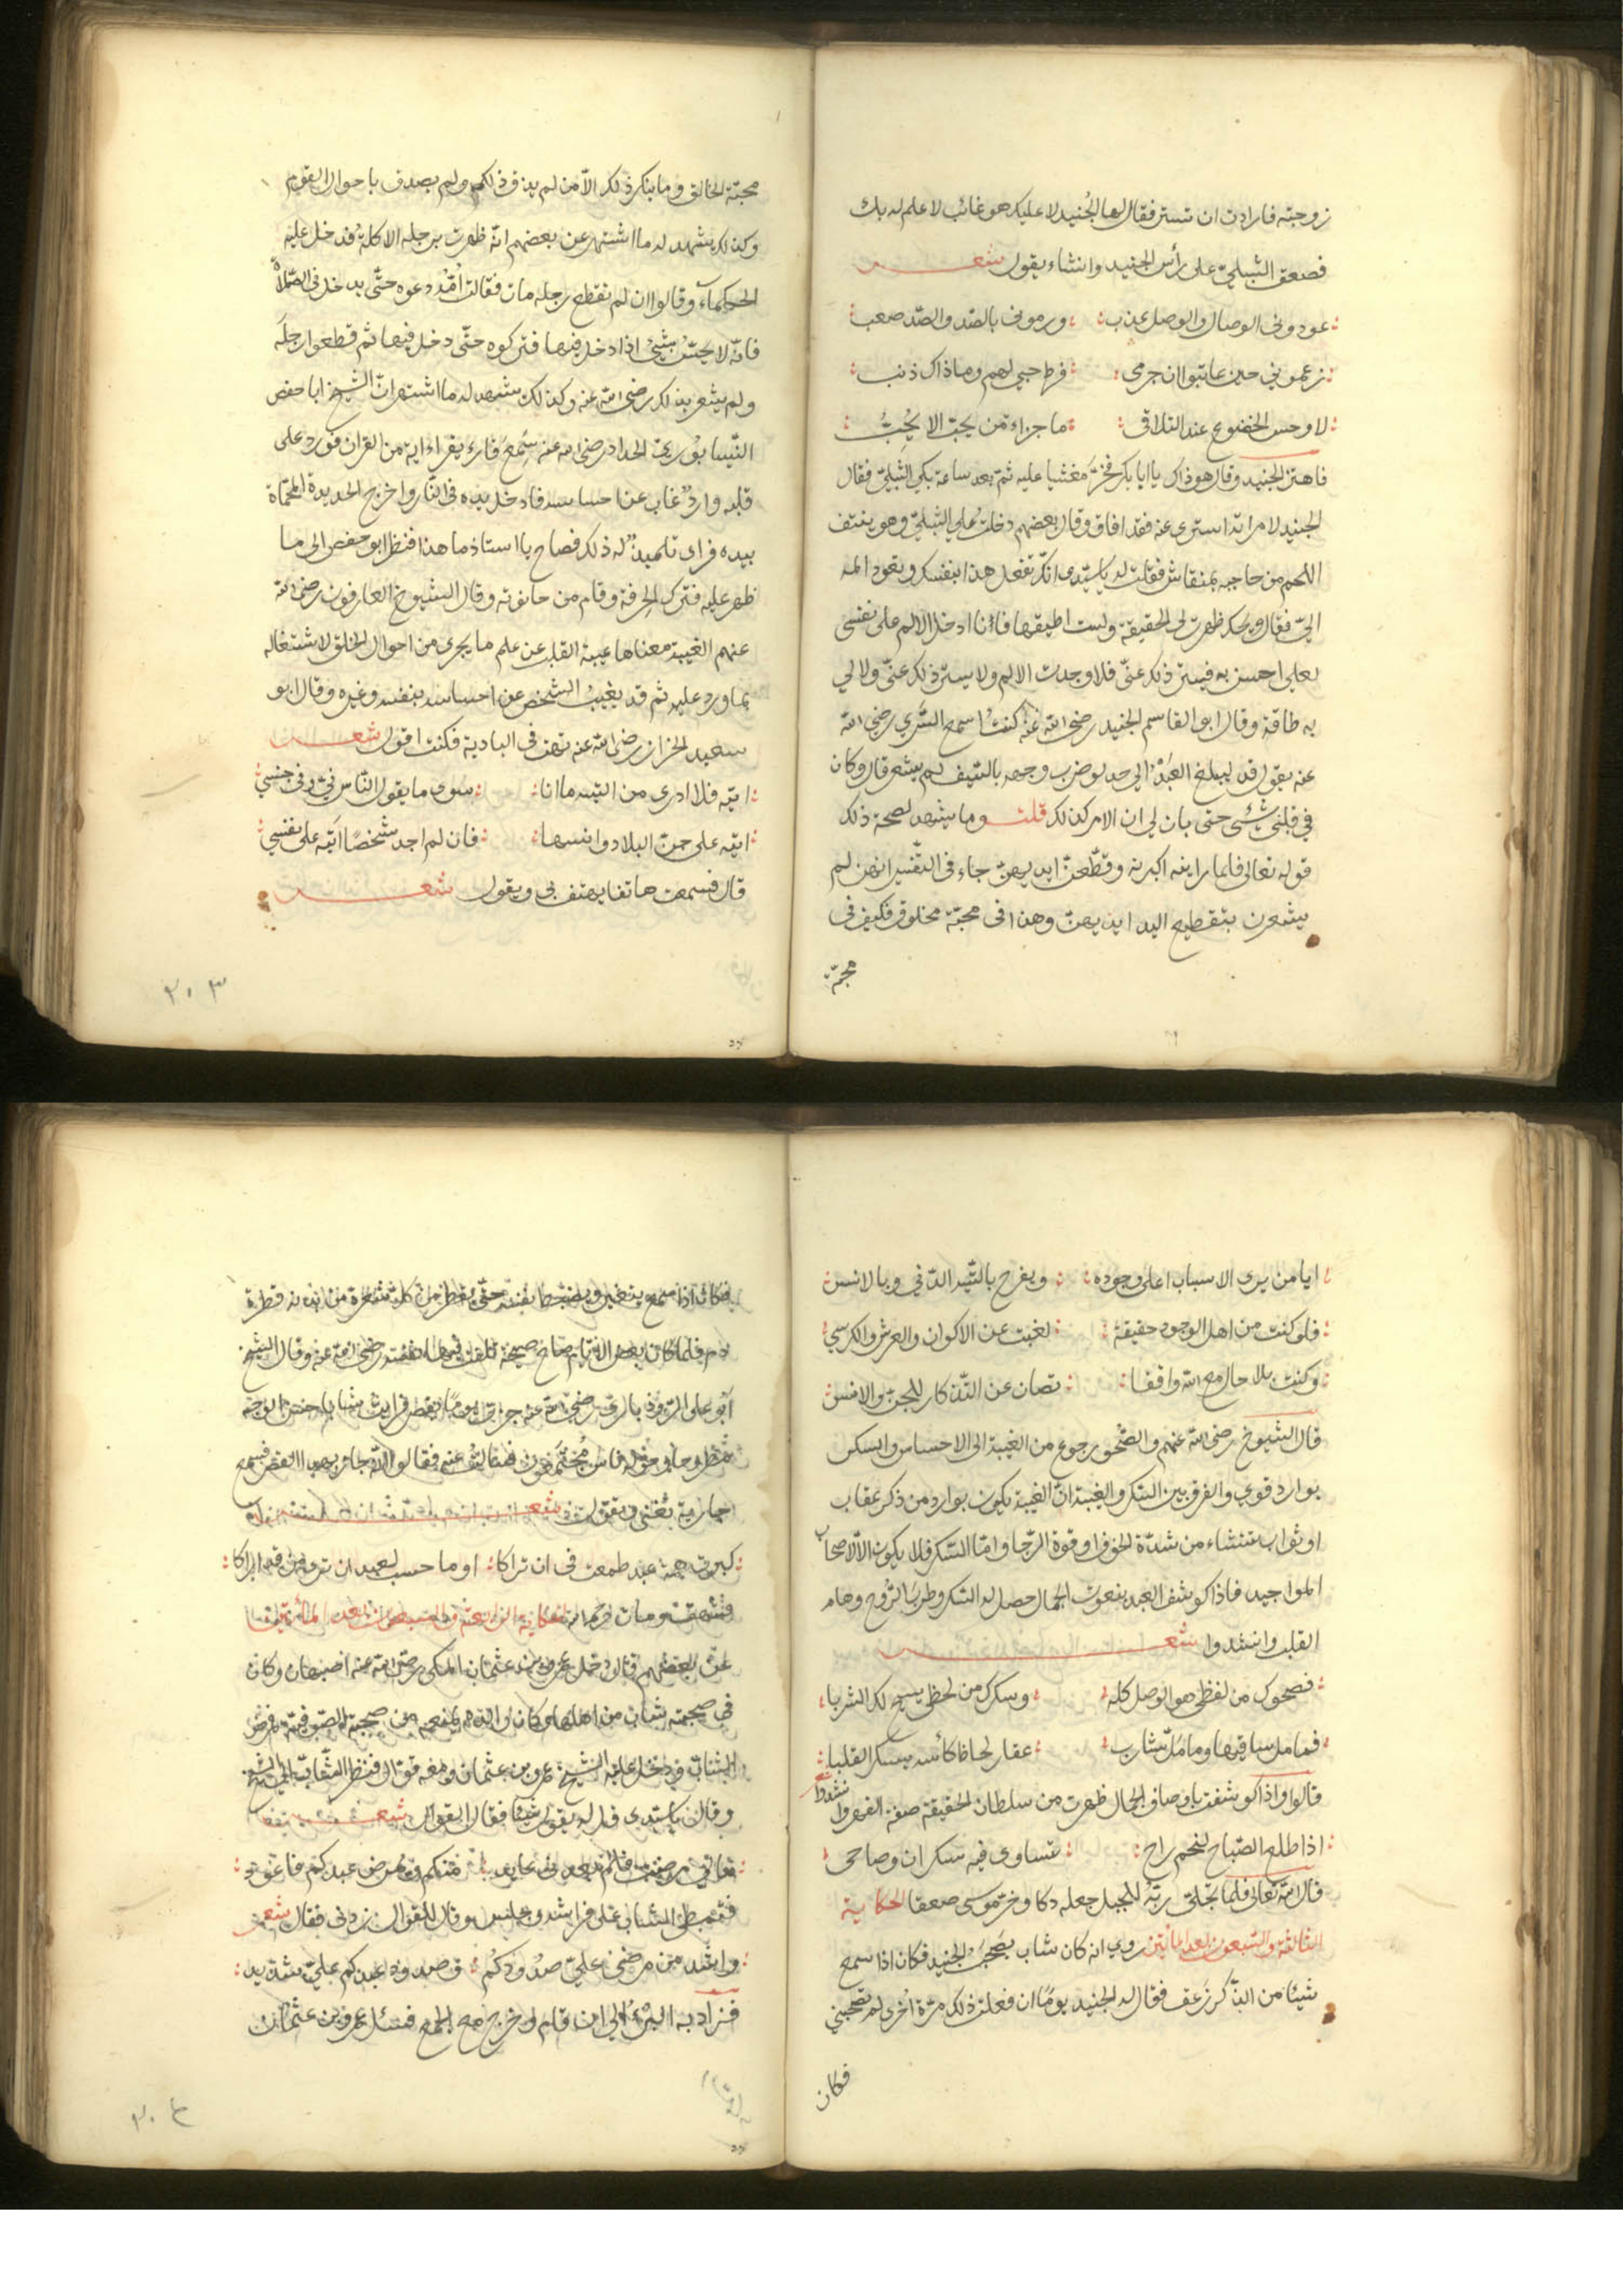 زوجته فارادت ان تستر فقال لها الجُنيد لا عليك هو غائب لا علم له بك
فصعق الشبليّ على رأس الجنيد وانشاء يقول شعر
عودوني الوصال والوصل عذب ورموني بالصّد والصّد صعب
زعموني حين عاتبوا ان جرمي فرط حبي لهم وما ذاك ذنب
لا وحسن الخضوع عند التلاقي ما جزاء من يحبّ الا يُحبُّ
فاهتز الجنيد وقال هو ذاك يا ابا بكر فخرّ مغشيا عليه ثم بعد ساعة بكي الشبليّ فقال
الجنيد لامراته استتري عنه فقد افاق وقال بعضهم دخلت على الشبليّ وهو ينتف
اللحم من حاجبه بمنقاش فقلت له يا سيّدي انّك تفعل هذا بنفسك ويعود المه
اليّ فقال ويحك ظهرت لي الحقيقة ولست اطيقها فاَنا ادخل الالم على نفسي
لعلي احسن به فيستر ذلك عنّي فلا وجدت الالم ولا يستر ذلك عنّي ولا لي
به طاقة وقال ابو القاسم الجنيد رضي الله عنه كنتُ اسمع السّري رضي الله
عنه يقول قد يبلغ العبدُ الى حد لو ضرب وجهه بالسّيف لم يشعر قال وكان
في قلبي شئي حتى بان لي ان الامر كذلك قلت وما يشهد لصحة ذلك
قوله تعالى فلما راينه اكبرنه وقطّعن ايديهنّ جاء في التّفسير انهن لم
يشعرن بتقطيع اليد ايديهنّ وهذا في محبّة مخلوق فكيف في
محبّة
محبّة الخالق وما ينكر ذلك الاّ من لم يذق ذلك ولم يصدق باحوال القوم
وكذلك يشهد له ما اشتهر عن بعضهم انّه ظهرت برجله الاكلة فدخل عليه
الحكماَء وقالوا ان لم نقطع رجله مات فقالت امّه دعوه حتّى يدخل في الصّلاة
فانّه لا يحسّ بشئ اذا دخل فيها فتركوه حتّى دخل فيها ثم قطعوا رجله
ولم يشعر بذلك رضي الله عنه وكذلك يشهد له ما اشتهر انّ الشيخ ابا حفص
النّيسابوري الحداد رضي الله عنه سمع قارء يقراء اية من القران فورد على
قلبه واردٌ غاب عن احساسه فادخل يده في النّار واخرج الحديدة المحمّاة
بيده فراى تلميذٌ له ذلك فصاح يا استاذ ما هذا فنظر ابو حفص الى ما
ظهر عليه فترك الحرفة وقام من حانوته وقال الشيوخ العارفون رضي الله
عنهم الغيبة معناها غيبة القلب عن علم ما يجري من احوال الخلق لاشتغاله
بما ورد عليه ثم قد يغيبُ الشخص عن احساسه بنفسه وغيره وقال ابو
سعيد الخزاز رضي الله عنه تهت في البادية فكنت اقول شعر
اتيه فلا ادرى من التيه ما انا سوى ما يقول النّاس في وفي جنسي
اتيه على جنّ البلاد وانسها فان لم اجد شخصًا اَتيه على نفسي
قال فسمعت هاتفا يهتف بي ويقول شعر
٢٠٣
ايا من يرى الاسباب اعلى وجوده ويفرح بالتّيه الدّني وبالانس
فلو كنت من اهل الوجود حقيقة لغبت عن الاكوان والعرش والكرسي
وكنت بلا حال مع الله واقفا تصان عن التّذكار للجنّ والانس
قال الشيوخ رضي الله عنهم والصّحو رجوع من الغيبة الى الاحساس والسكر
بوارد قوي والفرق بين السّكر والغيبة انّ الغيبة يكون بوارد من ذكر عقاب
او ثواب تنشاء من شدّة الخوف او قوة الرّجا وامّا السّكر فلا يكون الاّ لاصحاب
المواجيد فاذا كوشف العبد بنعوت الجمال حصل له السّكر وطرب الرّوح وهام
القلب وانشدوا شعر
فصحوك من لفظي هو الوصل كله وسكرك من لحظي يبيح لك الشربا
فما مل ساقيها وما ملّ شارب عقار لحاظ كأسه يسكر القلبا
قالوا واذا كوشفت باوصاف الجمال ظهرت من سلطان الحقيقة صفة القهر وانشدوا شعر
اذا طلع الصّباح لنجم راح تساوى فيه سكران وصاحى
قال الله تعالى فلما تجلّى ربّه للجبل جعله دكا وخرّ موسى صعقا الحكاية
الثالثة والسّبعون بعد المائتين روي انه كان شاب يصحب الجنيد فكان اذا سمع
شيئا من الذّكر زعق فقال له الجنيد يومًا ان فعلت ذلك مرّة اُخرى لم تصحبني
فكان
فكان اذا سمع يتغير ويضبط نفسه حتّى يقطر من كل شعرة من بدنه قطرة
دم فلما كان بعض الايّام صاح صيحة تلفت فيها نفسه رضي الله عنه وقال الشيخ
اَبو على الرّوذباري رضي الله عنه جزت يومًا بقصر فرايت شابا حسن الوجه
مطروحا وحوله ناس مجتمعون فسالت عنه فقالوا انّه جاز بهذا القصر فسمع
جارية تغني وتقول شعر
كبرت همة عبد طمعت في ان تراكا او ما حسب لعين ان ترى من قد راكا
فشهق ومات رحمه الله الحكاية الرابعة والسبعون بعد المائتين
عن بعضهم قال دخل عمرو بن عثمان المكي رضي الله عنه اصبهان وكان
في صحبته شاب من اهلها وكان والده يمنعه من صحبة الصّوفية فمرض
الشّاب فدخل عليه الشيخ عمرو بن عثمان ومعه قوّال فنظر الشّابّ الى الشيخ
وقال يا سيّدي قل له يقول شيئا فقال القوال شعر
مالي مرضت فلم يعدني عايد منكم ويمرض عبدكم فاعود
فتمطى الشاب على فراشه وجلس وقال للقوال زدني فقال شعر
واشد من مرضي عليّ صُدودكُم وصدود عبدكم عليّ شديد
فزاد به البُرْءُ الى ان قام وخرج مع الجمع فسئل عمرو بن عثمان
٢٠٤